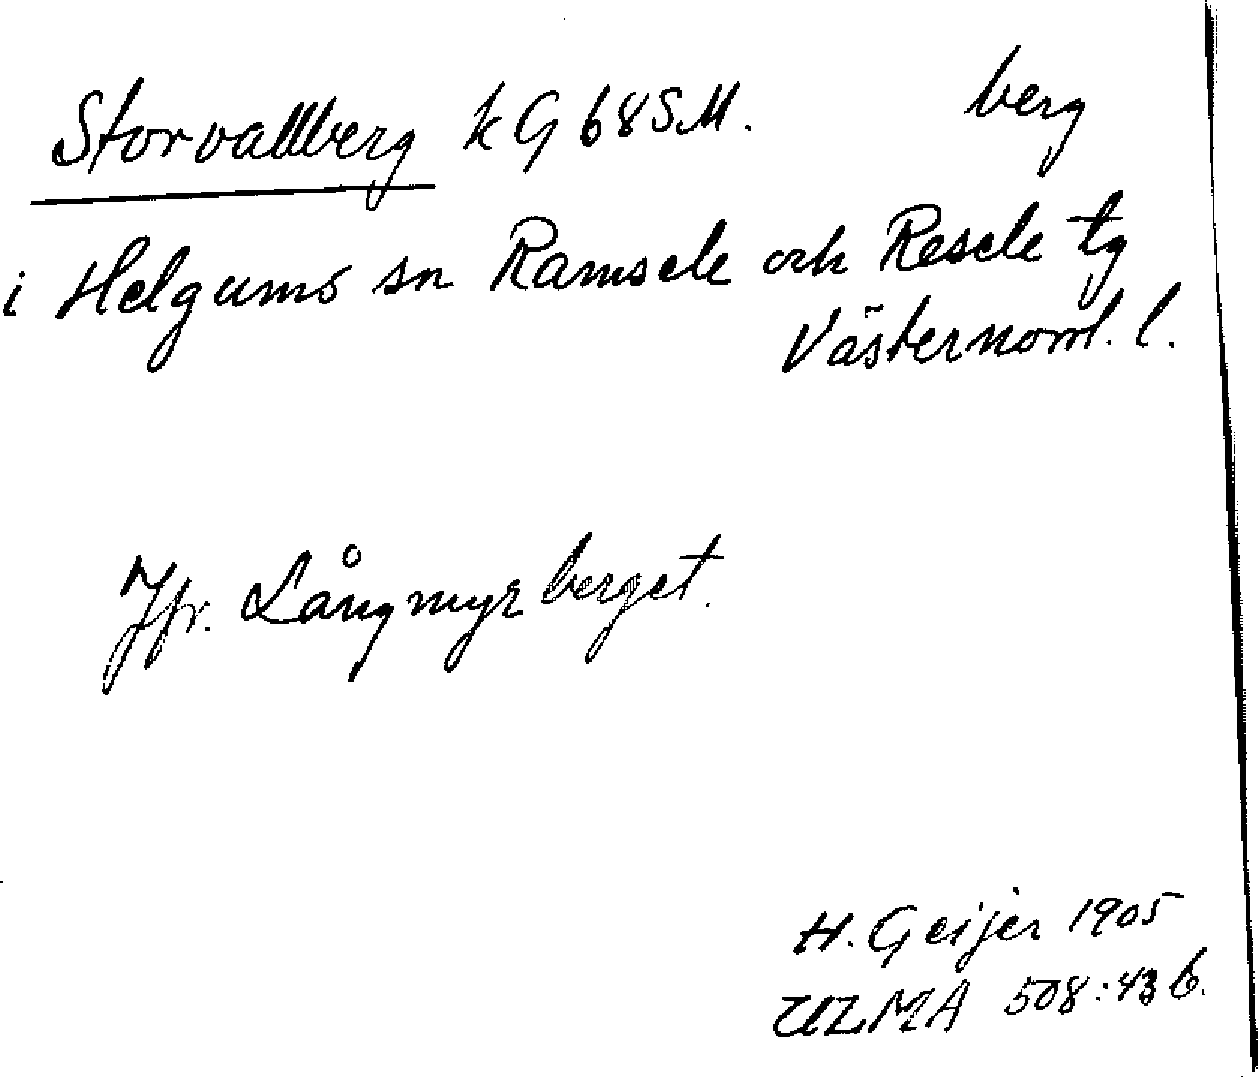 Storvallberg k G 68 SM. berg
i Helgums sn Ramsele och Resele tg
Västernorrl. l.
Jfr. Långmyrberget.
H. Geijer 1905
ULMA 508:43 b.